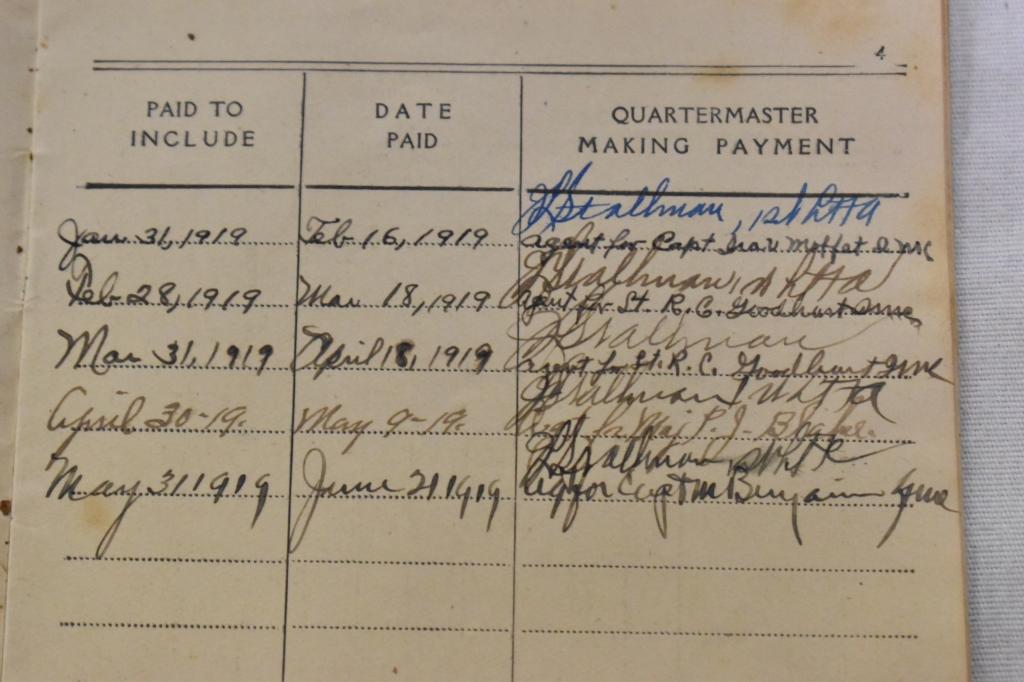 4
PAID TO INCLUDE
DATE PAID
QUARTERMASTER MAKING PAYMENT
Stallman, 1st Lt
Jan. 31, 1919 Feb 16, 1919 agent for Capt Ira U. Moffet QMC
Stallman, 1st Lt
Feb-28, 1919 Mar 18, 1919 Agent for Lt. R. C. Goodhart QMC
Stallman
Mar 31, 1919 April 18, 1919 agent for Lt. R. C. Goodhart QMC
Stallman
April 30-19. May 9-19. for Maj P. J.
Stallman 1st Lt
May 31 1919 June 21 1919 Capt M Benjamin QMC